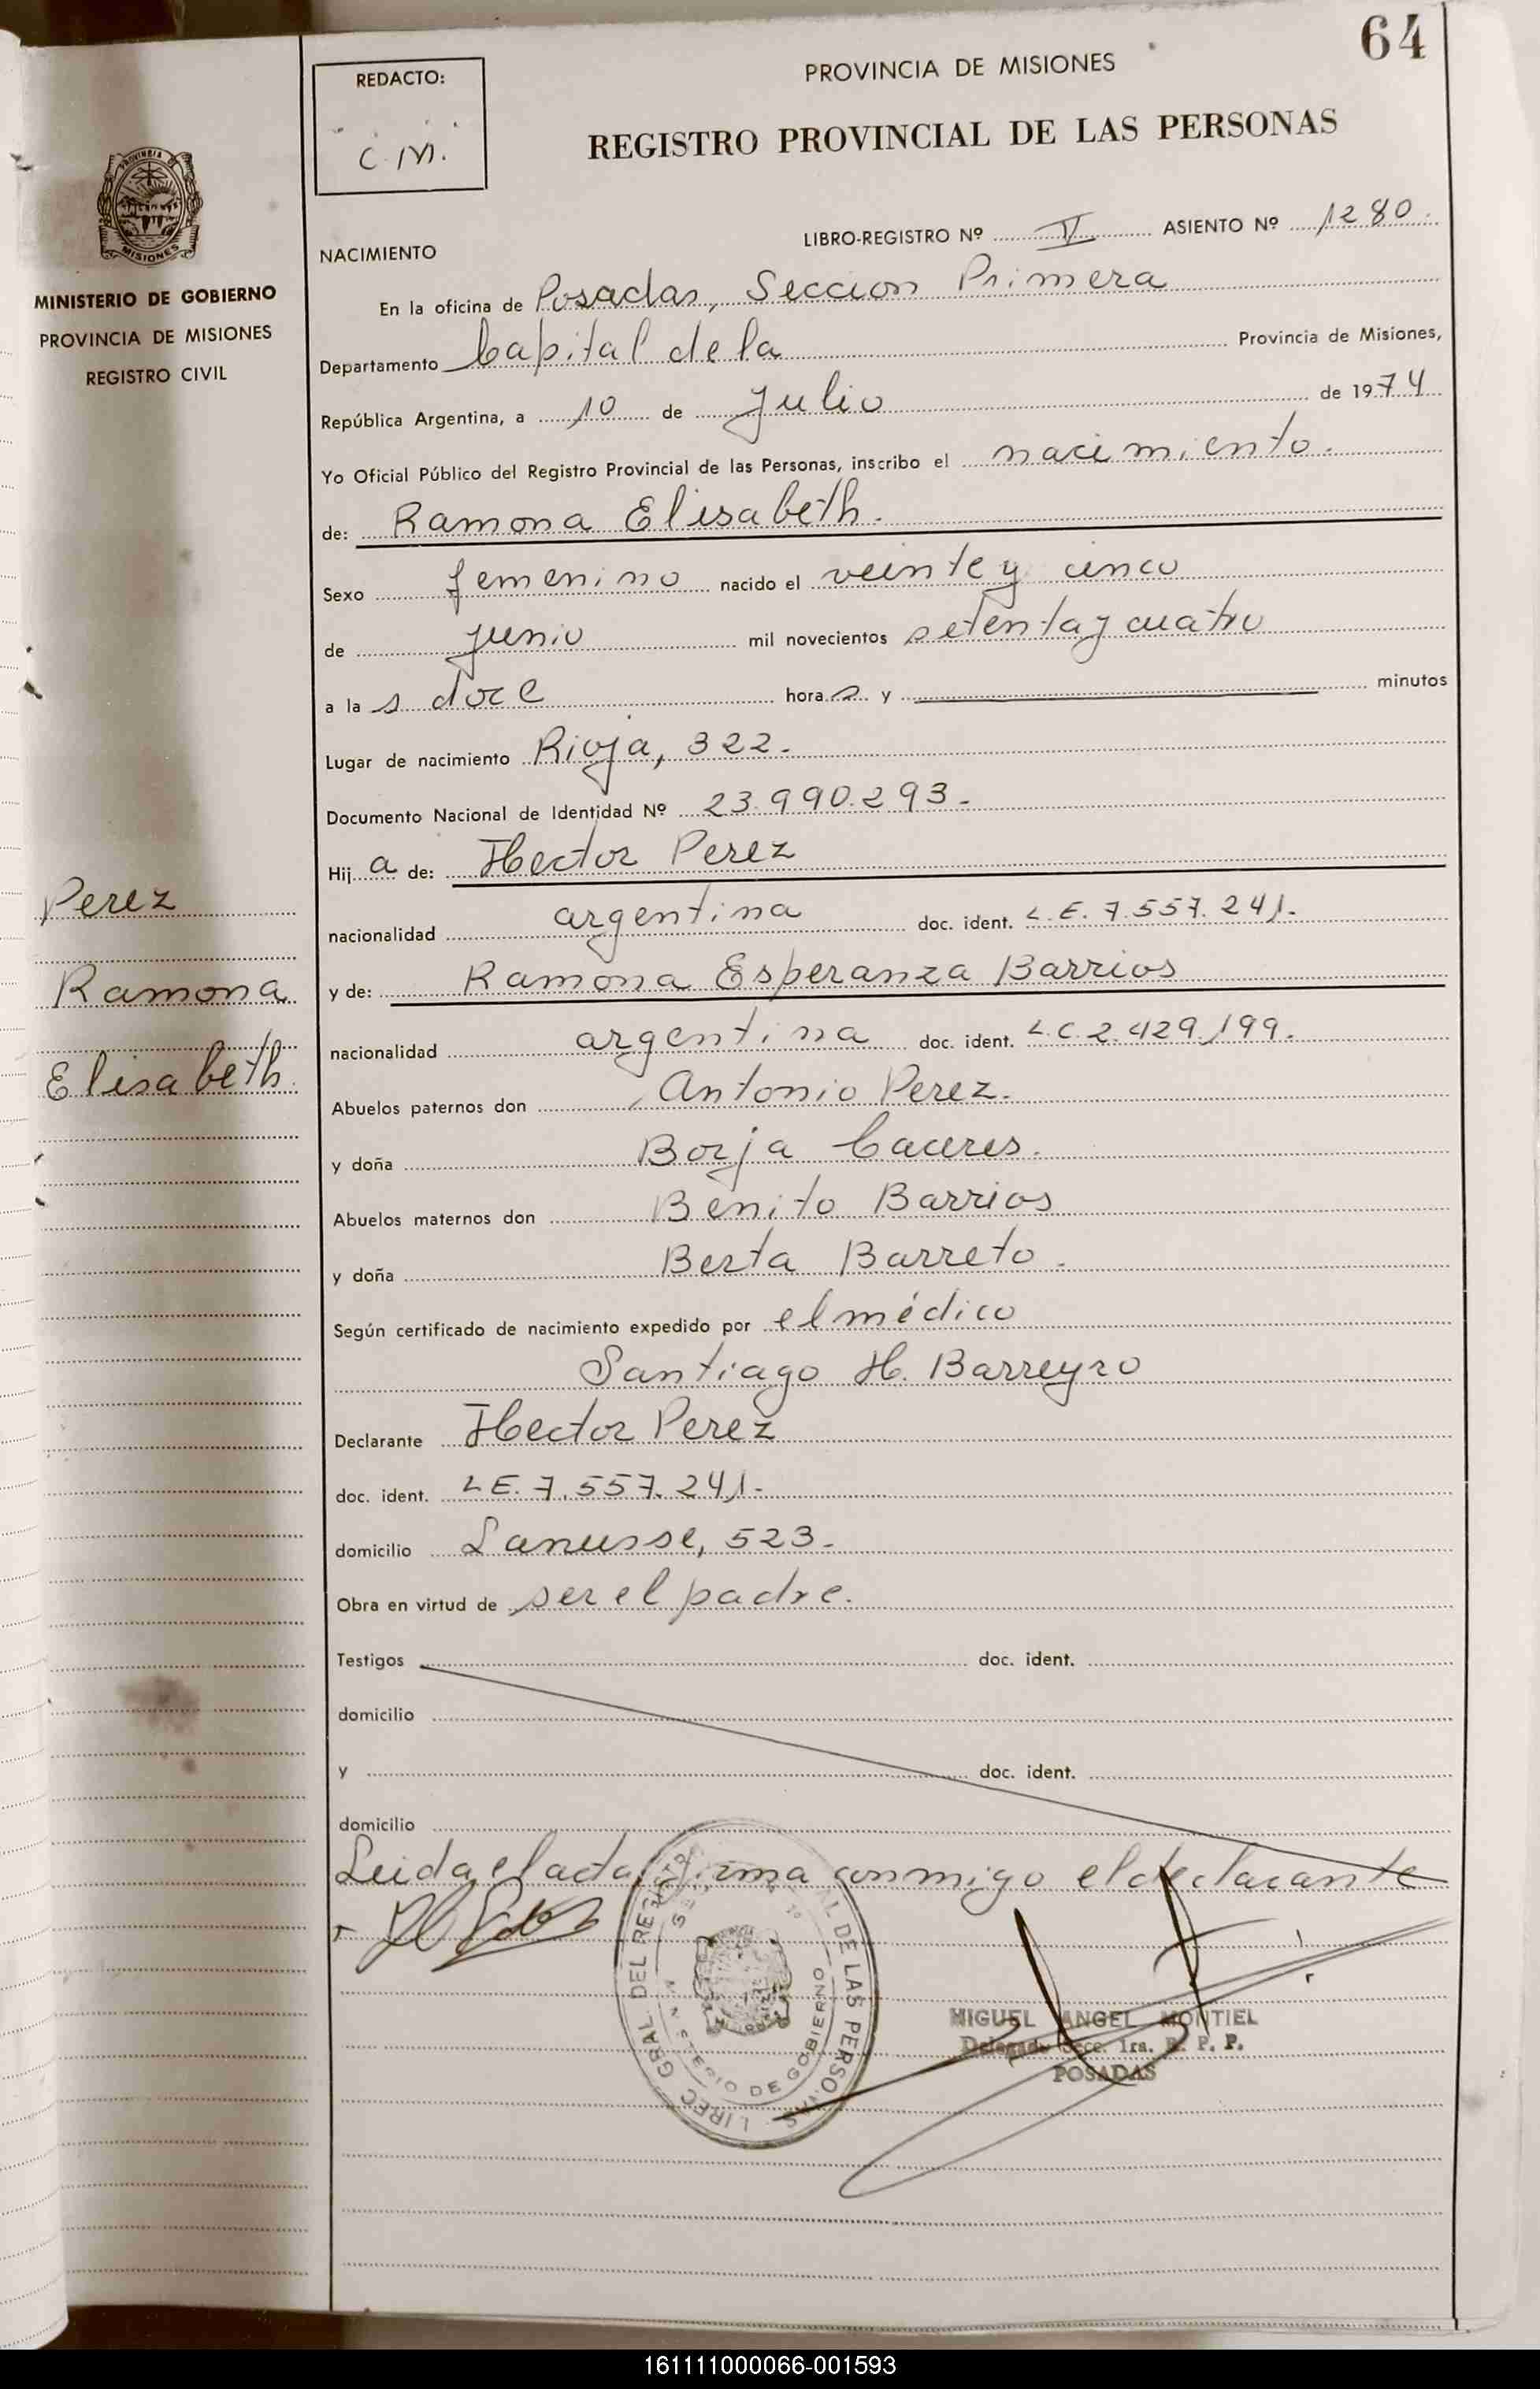 64
REDACTO:
C.M.
PROVINCIA DE MISIONES
REGISTRO PROVINCIAL DE LAS PERSONAS
MISIONES
MINISTERIO DE GOBIERNO
PROVINCIA DE MISIONES
REGISTRO CIVIL
NACIMIENTO
LIBRO-REGISTRO Nº V ASIENTO Nº 1280.
En la oficina de Posadas, Seccion Primera
Departamento Capital de la Provincia de Misiones,
República Argentina, a 10 de Julio de 1974
Yo Oficial Público del Registro Provincial de las Personas, inscribo el nacimiento.
de: Ramona Elisabeth.
Sexo femenino nacido el veinte y cinco
de junio mil novecientos setenta y cuatro
a las doce horas y minutos
Lugar de nacimiento Rioja, 322.
Documento Nacional de Identidad Nº 23.990.293.
Hija de: Hector Perez
nacionalidad argentina doc. ident. L.E. 7.557.241.
y de: Ramona Esperanza Barrios
nacionalidad argentina doc. ident. L.C. 2.429.199.
Perez
Ramona
Elisabeth.
Abuelos paternos don Antonio Perez.
y doña Borja Caceres.
Abuelos maternos don Benito Barrios
y doña Berta Barreto.
Según certificado de nacimiento expedido por el médico
Santiago H. Barreyro
Declarante Hector Perez
doc. ident. L.E. 7.557.241.
domicilio Lanusse, 523.
Obra en virtud de ser el padre.
Testigos doc. ident.
domicilio
y doc. ident.
domicilio
Leida el acta, firma conmigo el declarante
DIREC. GRAL. DEL REGISTRO DE LAS PERSONAS
MINISTERIO DE GOBIERNO
MIGUEL ANGEL MONTIEL
Delegado Secc. 1ra. R. P. P.
POSADAS
161111000066-001593